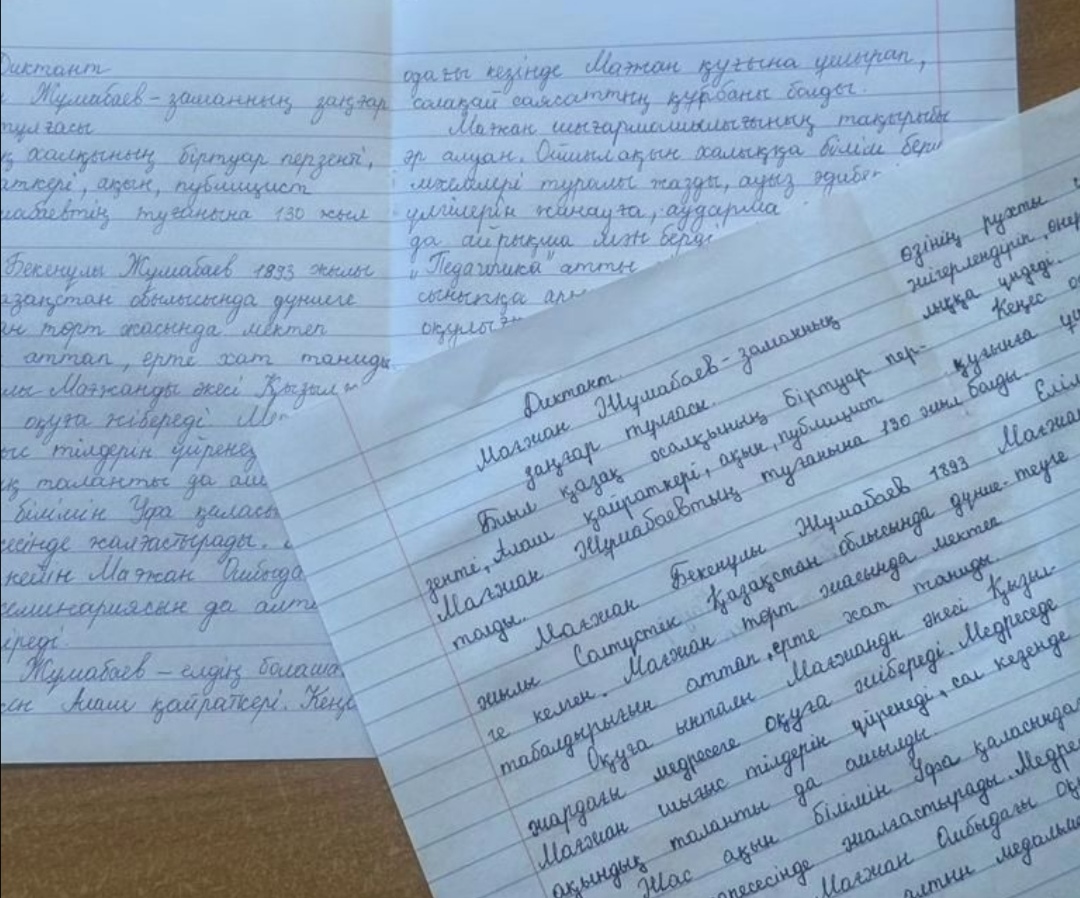 Диктант
Жұмабаев – заманның заңғар
тұлғасы
халқының біртуар перзенті,
ақын, публицист
туғанына 130 жыл
Бекенұлы Жұмабаев 1893 жылы
облысында дүниеге
төрт жасында мектеп
аттап, ерте хат таниды.
Мағжанды әкесі Қызыл
оқуға жібереді.
тілдерін үйренед
таланты да аш
білімін Уфа қаласы
жалғастырады.
кейін Мағжан Омбыда
семинариясын да алт
Жұмабаев – елдің болаша
Алаш қайраткері. Кеңе
одағы кезінде Мағжан қуғынға ұшырап,
солақай саясаттың құрбаны болды.
Мағжан шығармашылығының тақырыбы
әр алуан. Ойшыл ақын халыққа білім бер
мәселелері туралы жазды, ауыз әдебие
үлгілерін жинауға, аударма
да айрықша мән берді
„Педагогика" атты
сыныпқа
оқулығ
Диктант.
Мағжан Жұмабаев – заманның
заңғар тұлғасы.
Биыл қазақ халқының біртуар пер-
зенті, Алаш қайраткері, ақын, публицист
Мағжан Жұмабаевтың туғанына 130 жыл болды.
толды.
Мағжан Бекенұлы Жұмабаев 1893
жылы Солтүстік Қазақстан облысында дүние-
ге келген. Мағжан төрт жасында мектеп
табалдырығын аттап, ерте хат таниды.
Оқуға ынталы Мағжанды әкесі Қызыл-
жардағы медресеге оқуға жібереді. Медреседе
Мағжан шығыс тілдерін үйренеді, сол кезенде
ақындық таланты да ашылды.
Жас ақын білімін Уфа қаласындағ
жалғастырады. Медре
Мағжан Омбыдағы оқ
алтын медальм
өзінің рухты
жігерлендіріп, өнер
лыққа үндеді.
Кеңес о
қуғынға ұш
Елім
Мағжан
теуге